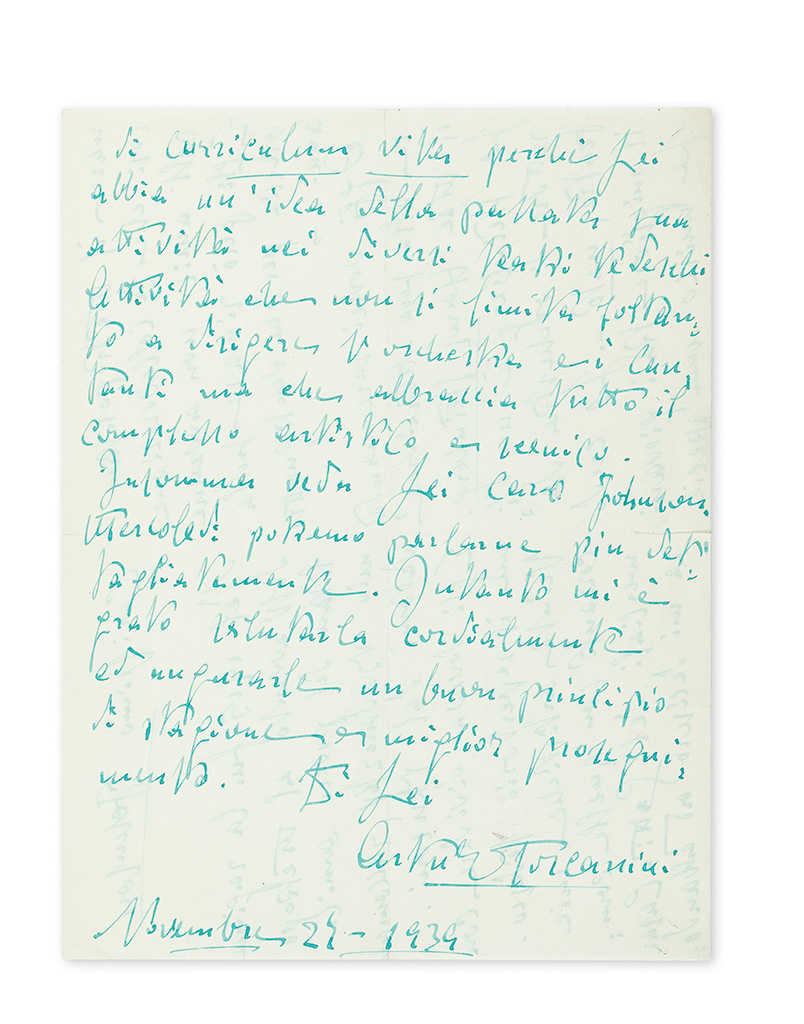 di curriculum vitae perchè Lei
abbia un'idea della passata sua
attività nei diversi teatri tedeschi
Attività che non si limita soltan-
to a dirigere l'orchestra e i can
tanti ma che abbraccia tutto il
complesso artistico e tecnico.
Insomma veda Lei caro Johnson.
Mercoledì potremo parlarne piu det-
tagliatamente. Intanto mi è
grato salutarla cordialmente
ed augurarle un buon principio
di stagione e miglior prosegui-
mento. Di Lei
Arturo Toscanini
Novembre 27 - 1939